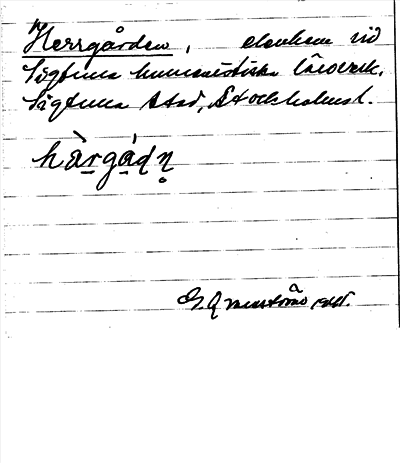 Herrgården, elevhem vid
Sigtuna humanistiska läroverk,
Sigtuna stad, Stockholms l.
hàrgádn̥